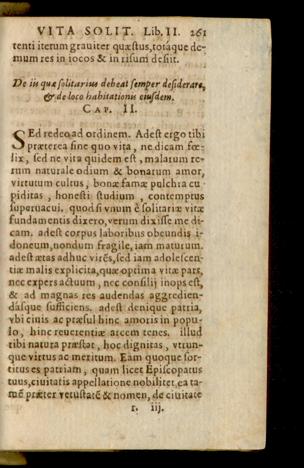 VITA SOLIT. Lib. II. 261
tenti iterum grauiter quæstus, totaque de-
mum res in iocos & in risum desiit.
De iis quæ solitarius debeat semper desiderare,
& de loco habitationis eiusdem.
CAP. II.
SEd redeo ad ordinem. Adest ergo tibi
præterea sine quo vita, ne dicam fœ-
lix, sed ne vita quidem est, malarum re-
rum naturale odium & bonarum amor,
virtutum cultus, bonæ famæ pulchra cu
piditas, honesti studium, contemptus
superuacui. quod si vnum ē solitariæ vitæ
fundamentis dixero, verum dixisse me di-
cam. adest corpus laboribus obeundis i-
doneum, nondum fragile, iam maturum.
adest ætas adhuc virēs, sed iam adolescen-
tiæ malis explicita, quæ optima vitæ pars,
nec expers actuum, nec consilij inops est,
& ad magnas res audendas aggredien-
dásque sufficiens. adest denique patria,
vbi ciuis ac præsul hinc amoris in popu-
lo, hinc reuerentiæ arcem tenes. illud
tibi natura præstat, hoc dignitas, vtrun-
que virtus ac meritum. Eam quoque sor-
titus es patriam, quam licet Episcopatus
tuus, ciuitatis appellatione nobilitet, ea ta-
mē præter vetustatē & nomen, de ciuitate
r. iij.